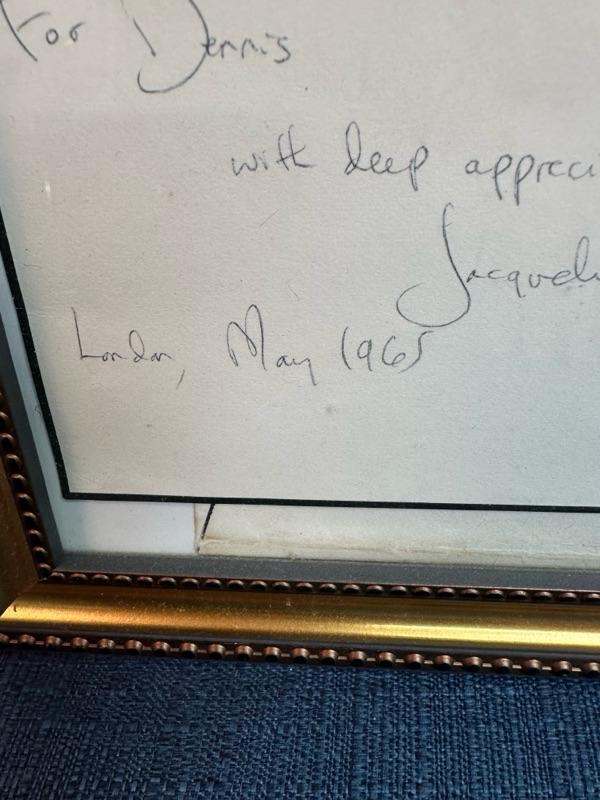 For Dennis
with deep appreci
Jacquel
London, May 1965